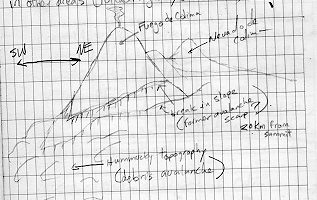 in other areas
Fuego de Colima
Nevado de
Colima
SW
NE
break in slope
(former avalanche
scarp)
20km from
summit
Hummocky topography
(debris avalanche)